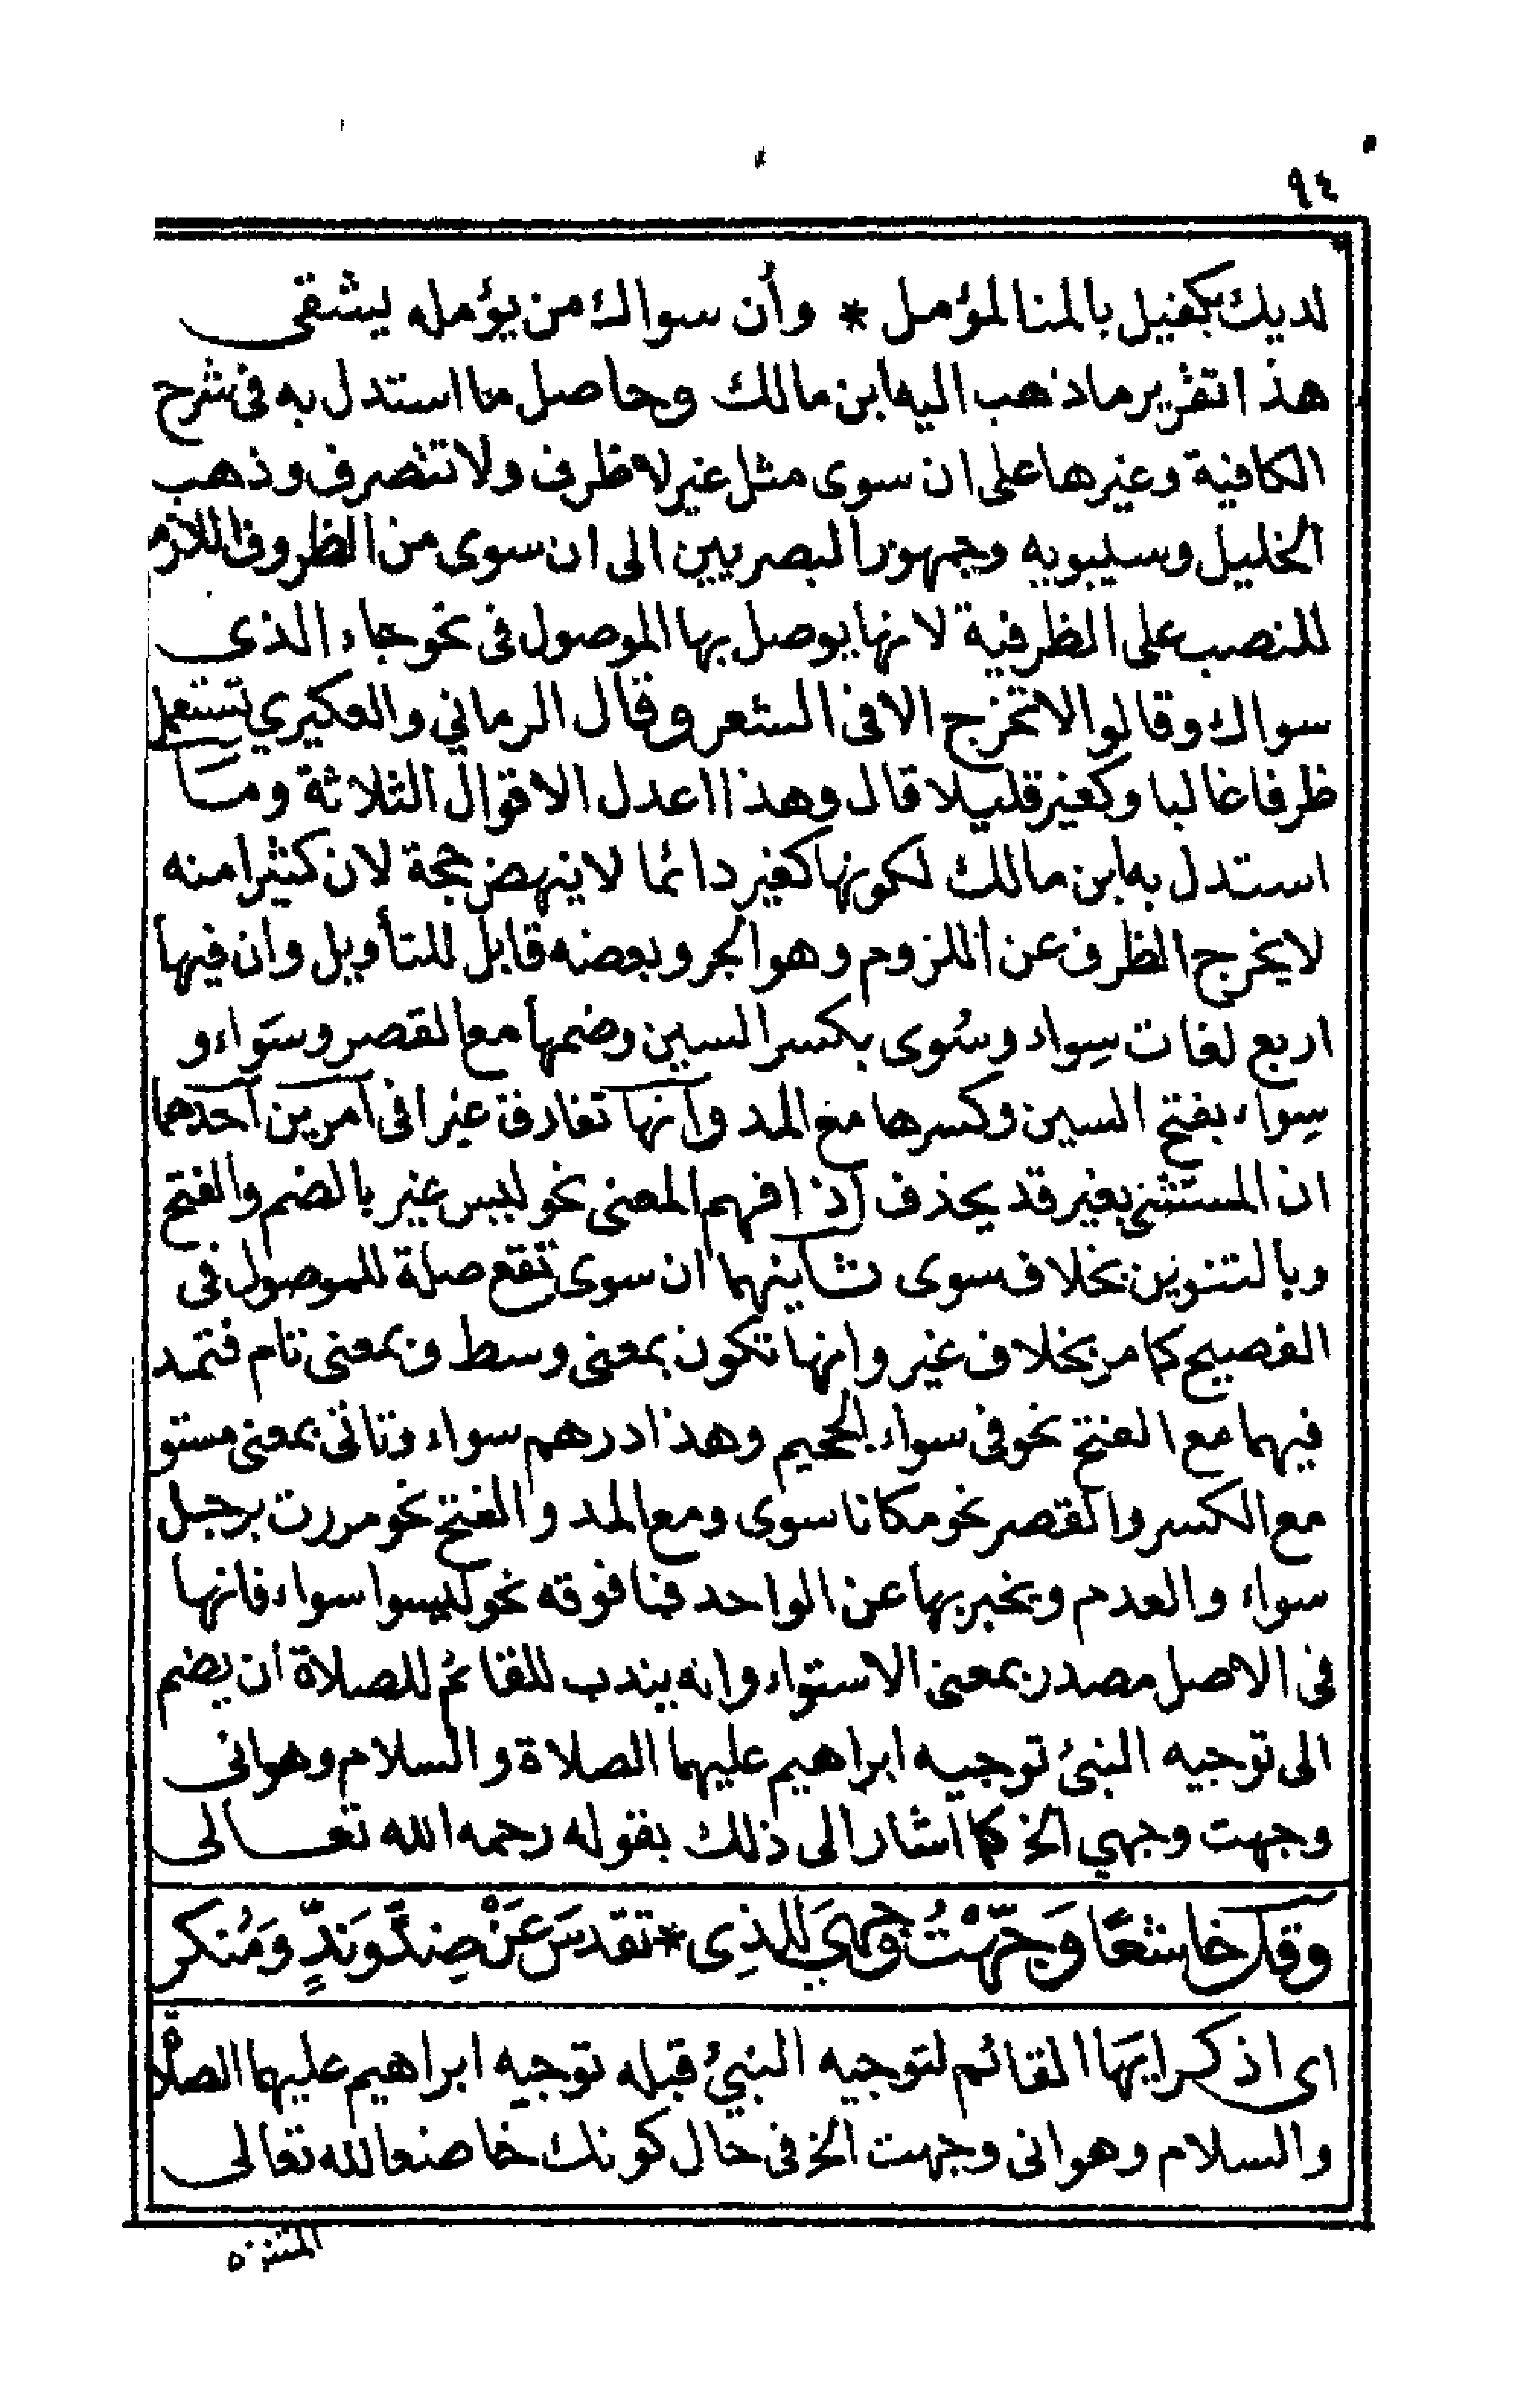 ٩٤
لديك بكفيل بالمنا لمؤمل * وأن سواك من يؤمله يشقى
هذا تقرير ما ذهب اليه ابن مالك وحاصل ما استدل به فى شرح
الكافية وغيرها على ان سوى مثل غير لا ظرف ولا تتصرف وذهب
الخليل وسيبويه وجمهور البصريين الى ان سوى من الظروف اللازم
للنصب على الظرفية لانها يوصل بها الموصول فى نحو جاء الذي
سواك وقالوا لا تخرج الا فى الشعر وقال الرماني والعكبري تستعمل
ظرفا غالبا وكغير قليلا قال وهذا اعدل الاقوال الثلاثة وما
استدل به ابن مالك لكونها كغير دائما لا ينهض حجة لان كثيرا منه
لا يخرج الظرف عن اللزوم وهو الجر وبعضه قابل للتأويل وان فيها
اربع لغات سِواد وسُوى بكسر السين وضمها مع القصر وسَواء و
سِواء بفتح السين وكسرها مع المد وانها تفارق غيرا فى امرين احدهما
ان المستثنى بغير قد يحذف اذا فهم المعنى نحو ليس غير بالضم والفتح
وبالتنوين بخلاف سوى ثانيهما ان سوى تقع صلة للموصول فى
الفصيح كما مر بخلاف غير وانها تكون بمعنى وسط وبمعنى تام فتمد
فيهما مع الفتح نحو فى سواء الجحيم وهذا درهم سواء وتاتى بمعنى مستو
مع الكسر والقصر نحو مكانا سوى ومع المد والفتح نحو مررت برجل
سواء والعدم ويخبر بها عن الواحد فما فوقه نحو ليسوا سواء فانها
فى الاصل مصدر بمعنى الاستواء وانه يندب للقائم للصلاة ان يضم
الى توجيه النبئ توجيه ابراهيم عليهما الصلاة والسلام وهو انى
وجهت وجهي الخ كما اشار الى ذلك بقوله رحمه الله تعالى
وقل خاشعًا وَجّهْتُ وجهيَ للذِى * تقدسَ عَنْ ضِندٍّ وَنِدٍّ وَمُنكر
اى اذكر ايها القائم لتوجيه النبيُ قبله توجيه ابراهيم عليهما الصلاة
والسلام وهو انى وجهت الخ فى حال كونك خاضعا لله تعالى
المتنزه